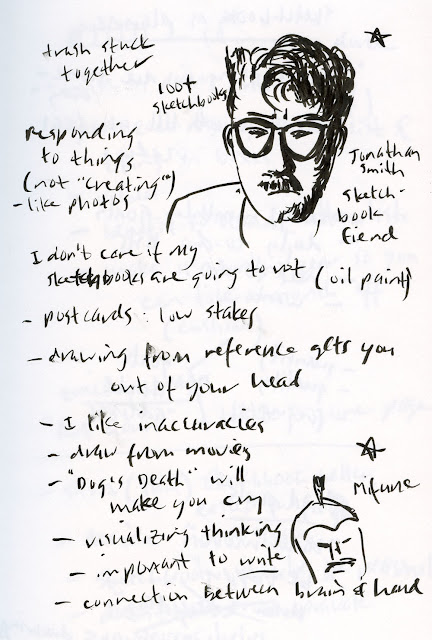 trash stuck
together
100+
sketchbooks
responding
to things
(not "creating")
- like photos
Jonathan
Smith
sketch-
book
fiend
I don't care if my
sketchbooks are going to rot (oil paint)
- postcards: low stakes
- drawing from reference gets you
out of your head
- I like inaccuracies
- draw from movies
- "Dog's Death" will
make you cry
Mifune
- visualizing thinking
- important to write
- connection between brain & hand